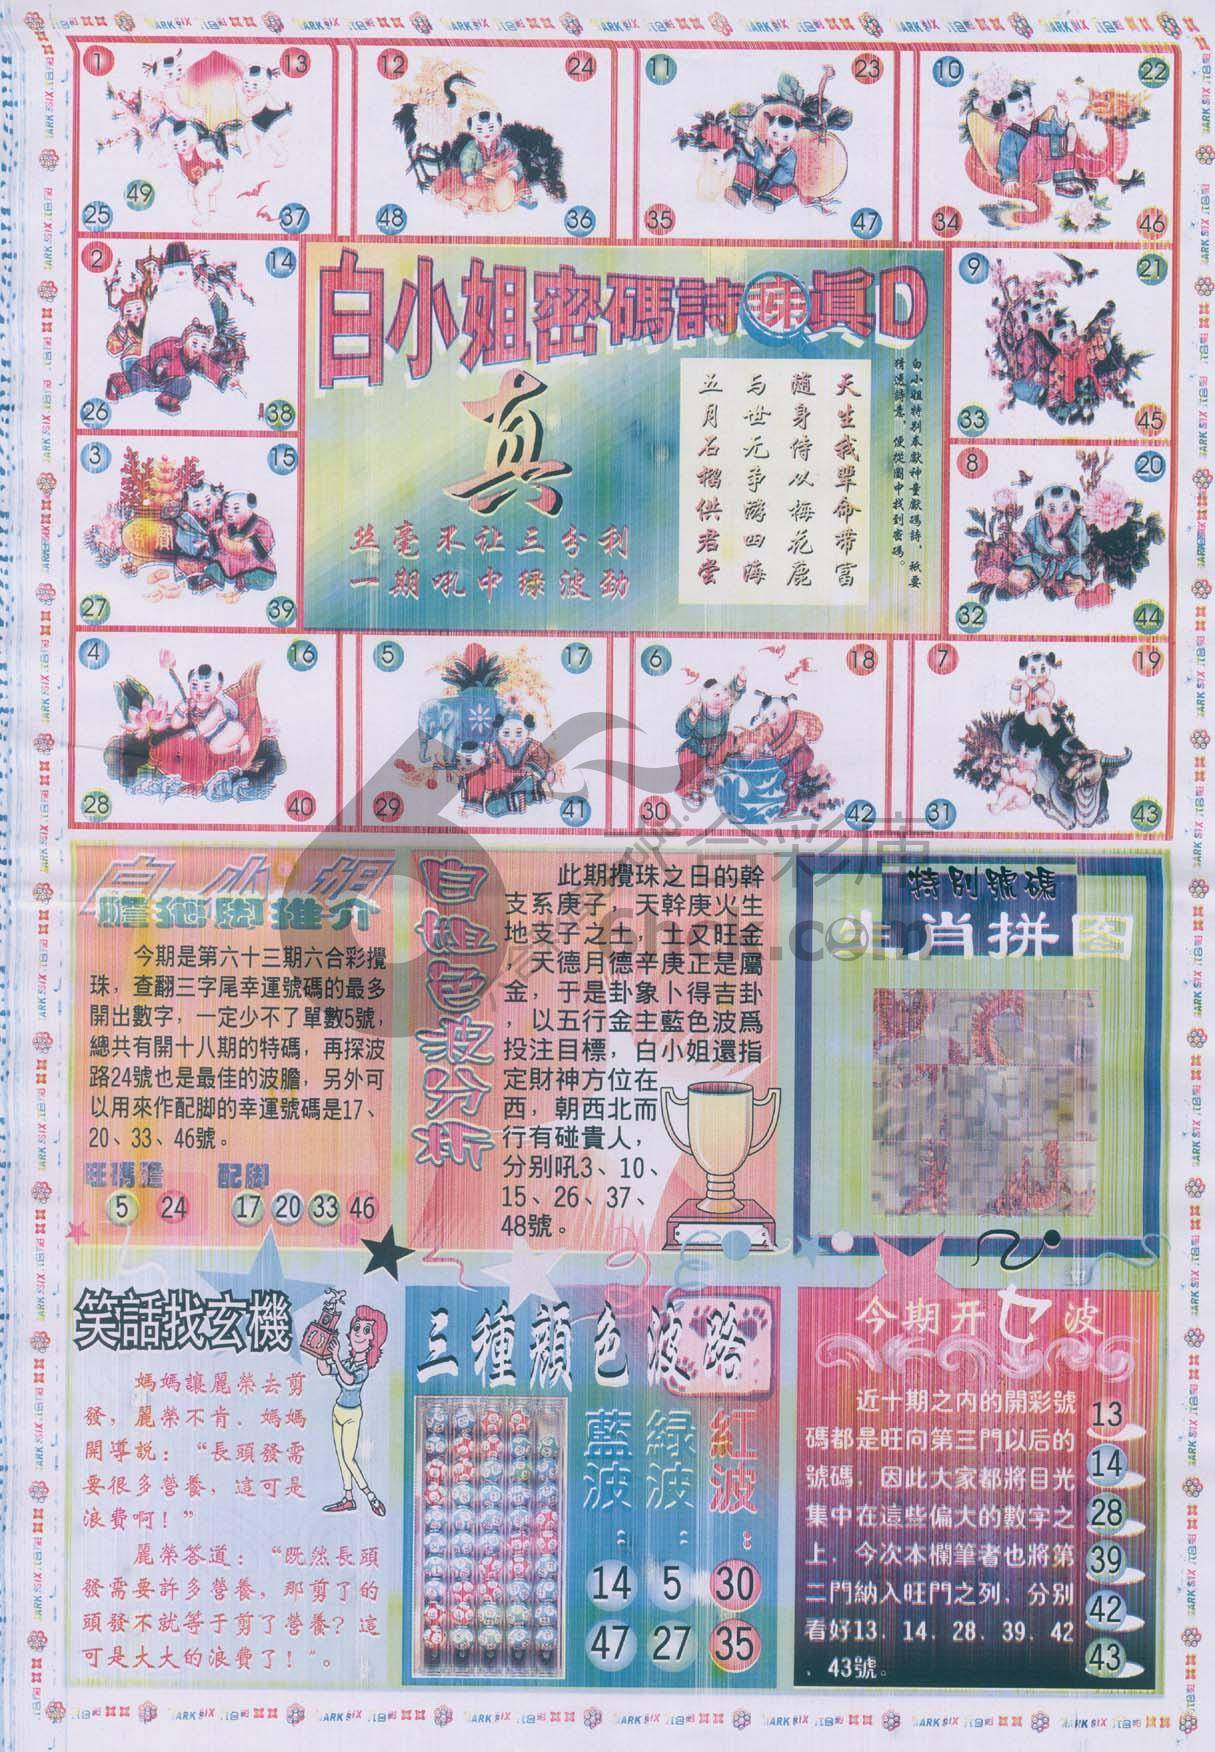 1 13
49
25 37
12 24
48 36
11 23
35 47
10 22
34 46
2 14
26 38
9 21
33 45
3 15
27 39
8 20
32 44
4 16
28 40
5 17
29 41
6 18
30 42
7 19
31 43
白小姐密碼詩 真D
真
丝毫不让三分利
一期吼中绿波劲
白小姐特别奉獻神童獻碼詩，祗要
猜透詩意，便從圖中找到密碼。
天生我辈命带富
随身侍从梅花鹿
与世无争游四海
五月石榴供君尝
白小姐
膽拖脚推介
今期是第六十三期六合彩攪
珠，查翻三字尾幸運號碼的最多
開出數字，一定少不了單數5號，
總共有開十八期的特碼，再探波
路24號也是最佳的波膽，另外可
以用來作配脚的幸運號碼是17、
20、33、46號。
旺碼膽 配脚
5 24 17 20 33 46
白姐色波分析
此期攪珠之日的幹
支系庚子，天幹庚火生
地支子之土，土又旺金
，天德月德辛庚正是屬
金，于是卦象卜得吉卦
，以五行金主藍色波爲
投注目標，白小姐還指
定財神方位在
西，朝西北而
行有碰貴人，
分别吼3、10、
15、26、37、
48號。
特别號碼
生肖拼图
笑話找玄機
媽媽讓麗榮去剪
發，麗榮不肯．媽媽
開導説：“長頭發需
要很多營養，這可是
浪費啊！”
麗榮答道：“既然長頭
發需要許多營養，那剪了的
頭發不就等于剪了營養？這
可是大大的浪費了！”。
三種顔色波路
藍波： 绿波： 紅波：
14 5 30
47 27 35
今期开七波
近十期之内的開彩號
碼都是旺向第三門以后的
號碼，因此大家都將目光
集中在這些偏大的數字之
上．今次本欄筆者也將第
二門納入旺門之列．分别
看好13．14．28．39．42
．43號。
13
14
28
39
42
43
六合彩库
6hck.com
MARK SIX 六合彩